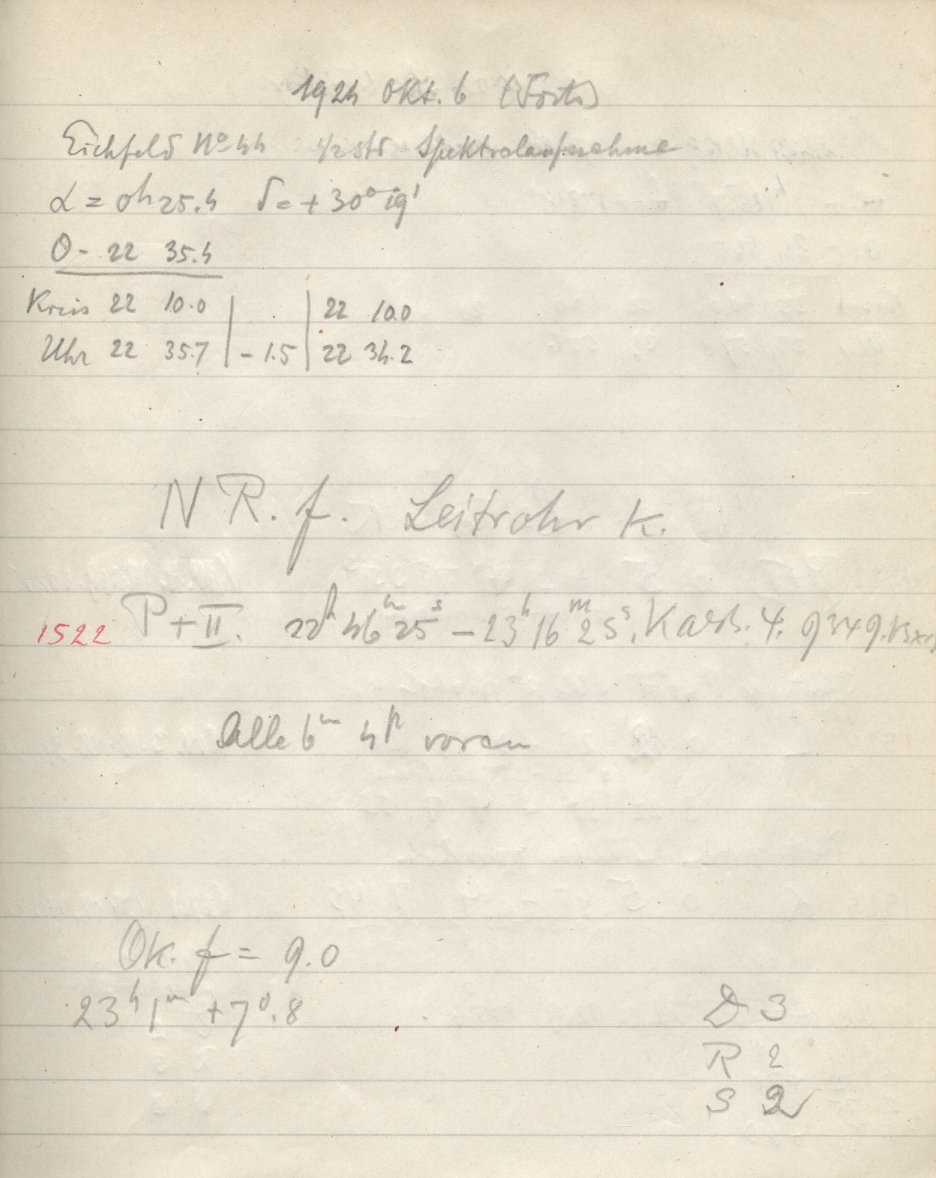 1924 Okt. 6 (Forts)
Eichfeld No 44 1/2 std Spektralaufnahme
α = 0h 25.4 δ = + 30° 19'
Θ - 22 35.4
Kreis 22 10.0 | . | 22 10.0
Uhr 22 35.7 | - 1.5 | 22 34.2
N R. f. Leitrohr K.
1522 P + II. 22h 46m 25s – 23h 16m 25s. Kass. 4. 9349.
Alle 6m 4p voran
Ok. f = 9.0
23h 1m +7°.8
D 3
R 2
S 2